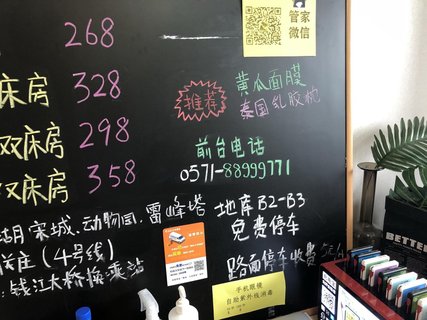 268
管家
微信
床房 328
推荐
黄瓜面膜
泰国乳胶枕
双床房 298
双床房 358
前台电话
0571-88999771
湖 宋城、动物园、雷峰塔
地库B2-B3
免费停车
(4号线)
钱江大桥换乘站
路面停车收费
手机眼镜
自助紫外线消毒
BETTER